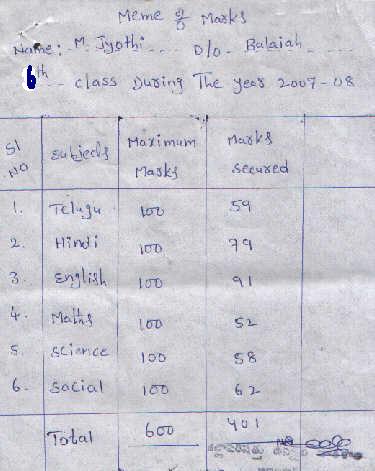 Meme of Marks
Name:- M. Jyothi.... D/o - Balaiah - ....
6th ... class During The year 2007-08
Sl NO subjects Maximum Marks Marks secured
1. Telugu 100 59
2. Hindi 100 79
3. English 100 91
4. Maths 100 52
5. science 100 58
6. Social 100 62
Total 600 401